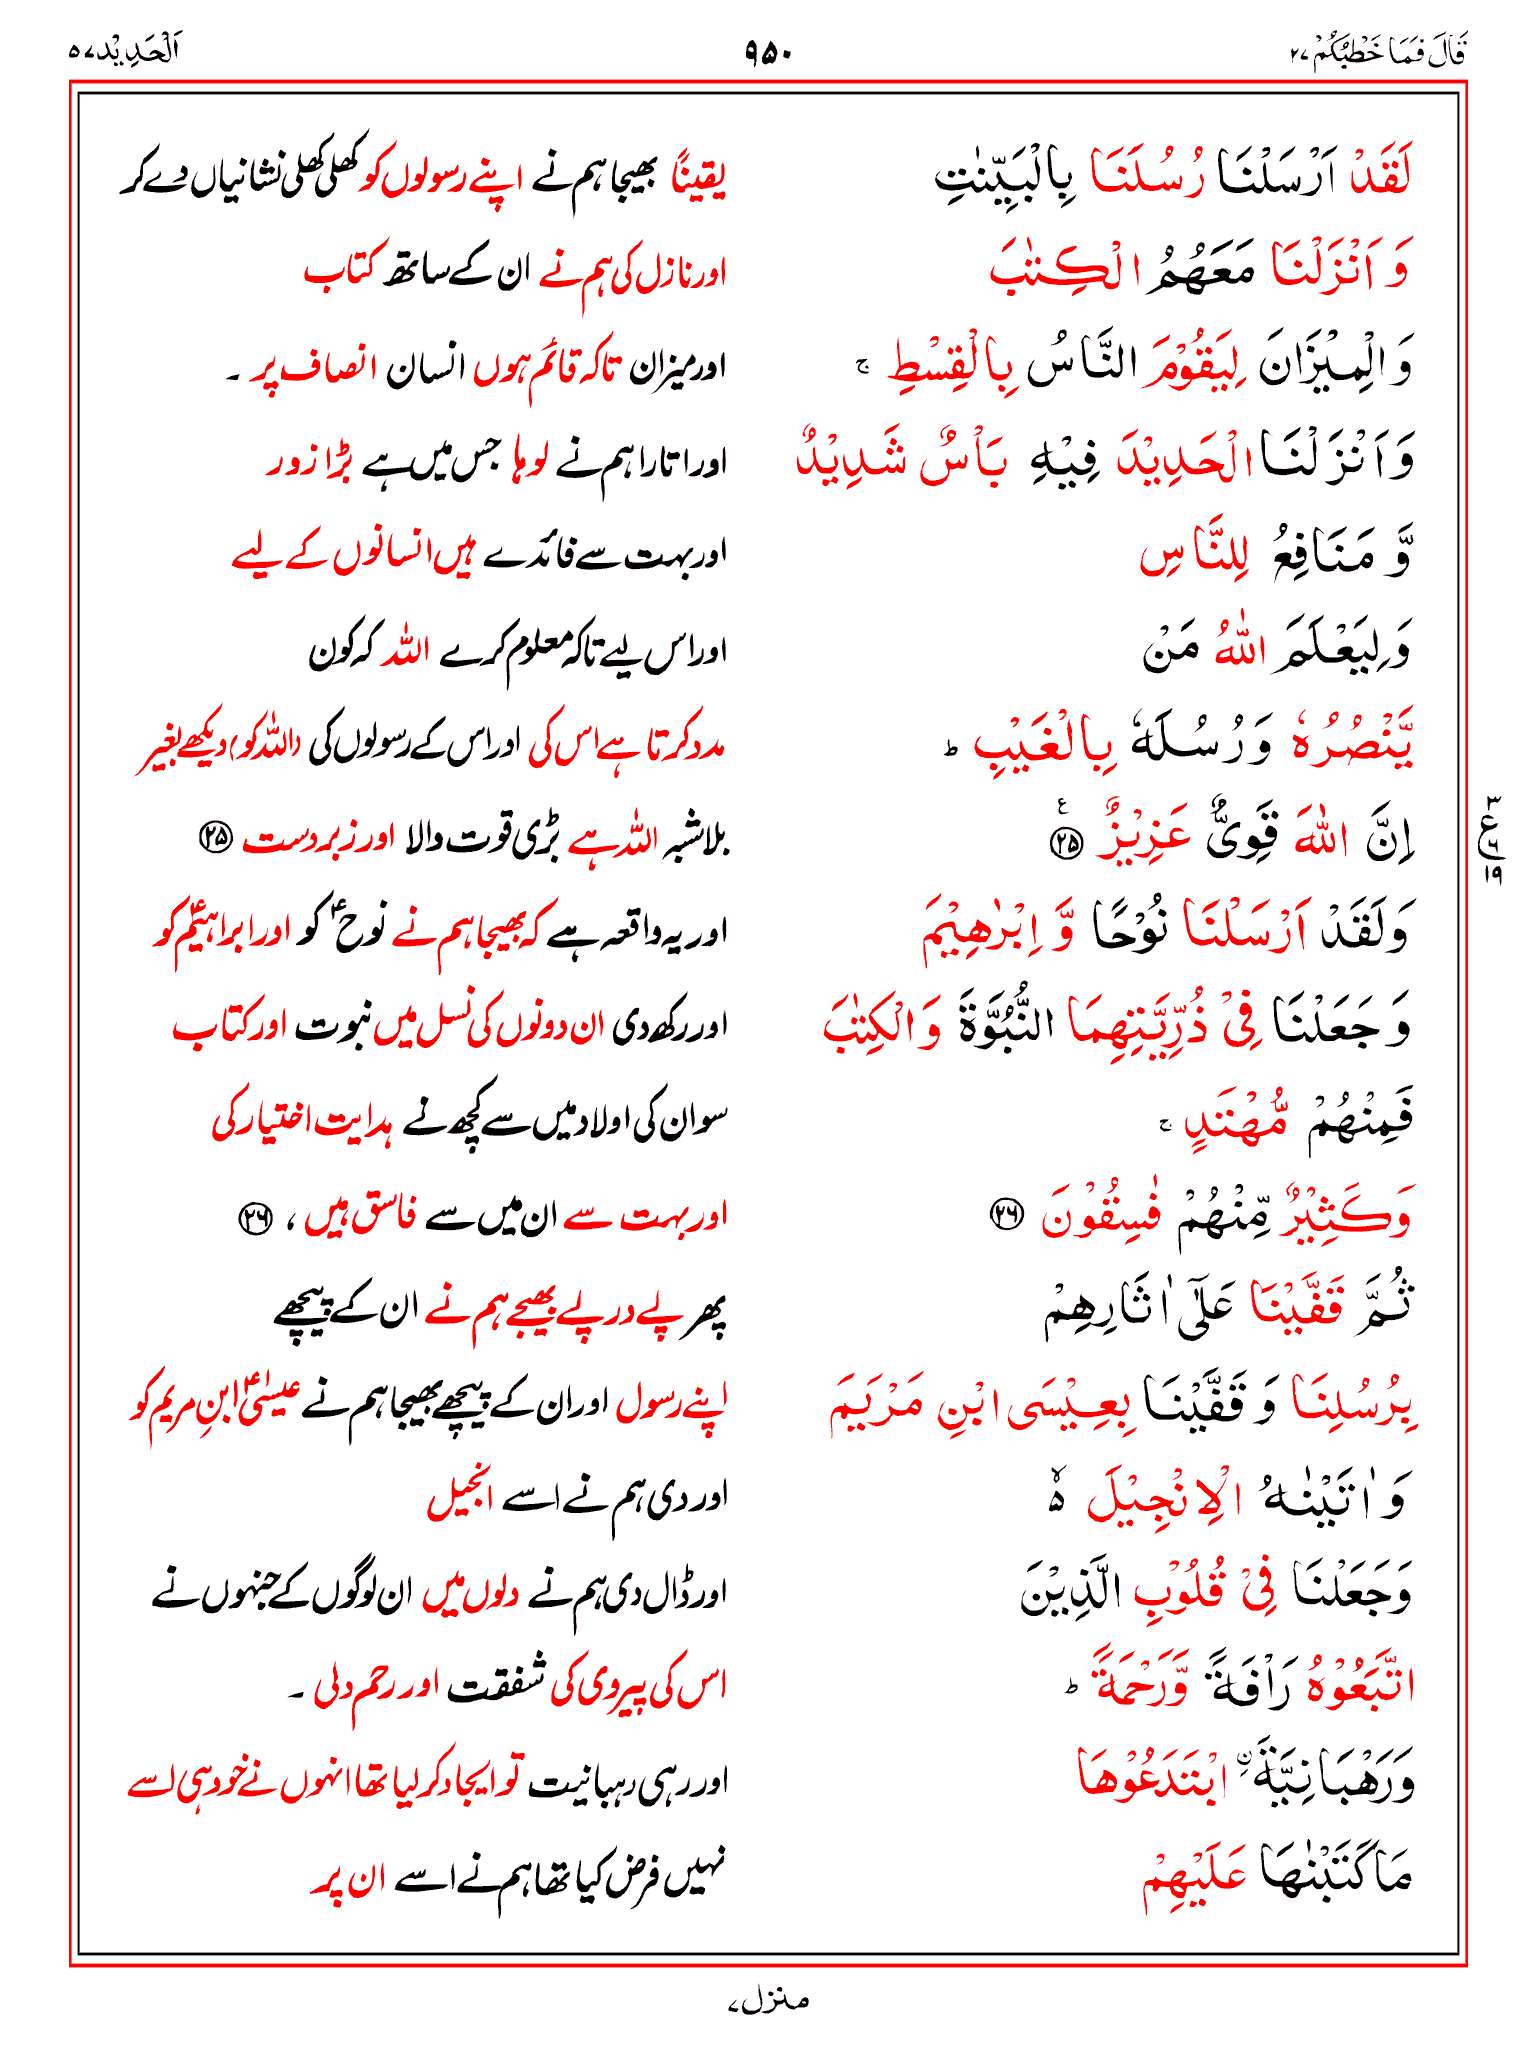 قَالَ فَمَا خَطْبُكُمْ ۲۷
۹۵۰
اَلْحَدِيْد ۵۷
لَقَدْ اَرْسَلْنَا رُسُلَنَا بِالْبَيِّنٰتِ
یقیناً بھیجا ہم نے اپنے رسولوں کو کھلی کھلی نشانیاں دے کر
وَ اَنْزَلْنَا مَعَهُمُ الْكِتٰبَ
اور نازل کی ہم نے ان کے ساتھ کتاب
وَالْمِيْزَانَ لِيَقُوْمَ النَّاسُ بِالْقِسْطِ ۚ
اور میزان تاکہ قائم ہوں انسان انصاف پر ۔
وَاَنْزَلْنَا الْحَدِيْدَ فِيْهِ بَاْسٌ شَدِيْدٌ
اور اتارا ہم نے لوہا جس میں ہے بڑا زور
وَّ مَنَافِعُ لِلنَّاسِ
اور بہت سے فائدے ہیں انسانوں کے لیے
وَلِيَعْلَمَ اللّٰهُ مَنْ
اور اس لیے تاکہ معلوم کرے اللہ کہ کون
يَّنْصُرُهٗ وَرُسُلَهٗ بِالْغَيْبِ ؕ
مدد کرتا ہے اس کی اور اس کے رسولوں کی (اللہ کو) دیکھے بغیر
اِنَّ اللّٰهَ قَوِيٌّ عَزِيْزٌ ۲۵ ع
بلاشبہ اللہ ہے بڑی قوت والا اور زبردست ۲۵
۳ ع ۶ ۱۹
وَلَقَدْ اَرْسَلْنَا نُوْحًا وَّ اِبْرٰهِيْمَ
اور یہ واقعہ ہے کہ بھیجا ہم نے نوحؑ کو اور ابراہیمؑ کو
وَ جَعَلْنَا فِيْ ذُرِّيَّتِهِمَا النُّبُوَّةَ وَالْكِتٰبَ
اور رکھ دی ان دونوں کی نسل میں نبوت اور کتاب
فَمِنْهُمْ مُّهْتَدٍ ۚ
سو ان کی اولاد میں سے کچھ نے ہدایت اختیار کی
وَكَثِيْرٌ مِّنْهُمْ فٰسِقُوْنَ ۲۶
اور بہت سے ان میں سے فاسق ہیں ، ۲۶
ثُمَّ قَفَّيْنَا عَلٰٓى اٰثَارِهِمْ
پھر پے در پے بھیجے ہم نے ان کے پیچھے
بِرُسُلِنَا وَ قَفَّيْنَا بِعِيْسَى ابْنِ مَرْيَمَ
اپنے رسول اور ان کے پیچھے بھیجا ہم نے عیسٰیؑ ابنِ مریم کو
وَ اٰتَيْنٰهُ الْاِنْجِيْلَ ۙ۵
اور دی ہم نے اسے انجیل
وَجَعَلْنَا فِيْ قُلُوْبِ الَّذِيْنَ
اور ڈال دی ہم نے دلوں میں ان لوگوں کے جنہوں نے
اتَّبَعُوْهُ رَاْفَةً وَّرَحْمَةً ؕ
اس کی پیروی کی شفقت اور رحم دلی ۔
وَرَهْبَانِيَّةَ ۨ ابْتَدَعُوْهَا
اور رہی رہبانیت تو ایجاد کر لیا تھا انہوں نے خود ہی اسے
مَا كَتَبْنٰهَا عَلَيْهِمْ
نہیں فرض کیا تھا ہم نے اسے ان پر
منزل ۷